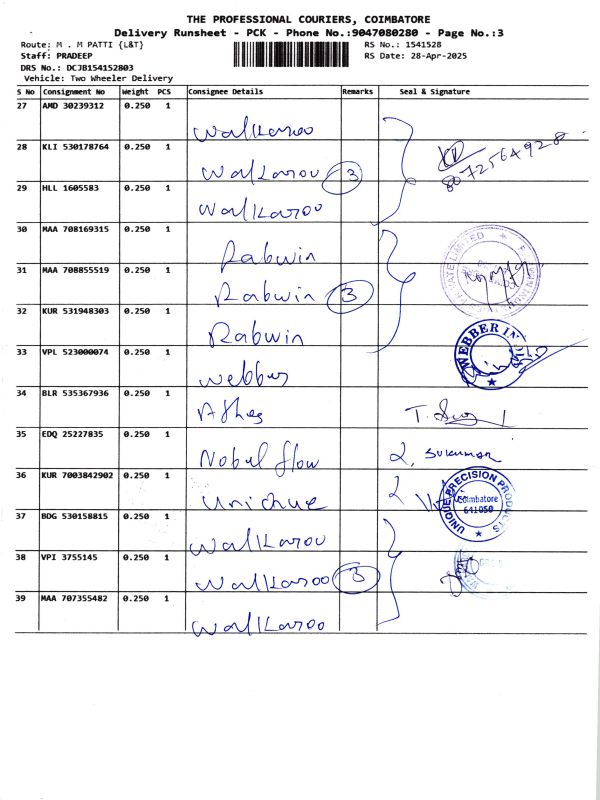 THE PROFESSIONAL COURIERS, COIMBATORE
Delivery Runsheet - PCK - Phone No.:9047080280 - Page No.:3
Route: M . M PATTI {L&T} RS No.: 1541528
Staff: PRADEEP RS Date: 28-Apr-2025
DRS No.: DCJB154152803
Vehicle: Two Wheeler Delivery
S No Consignment No Weight PCS Consignee Details Remarks Seal & Signature
27 AMD 30239312 0.250 1
Walkaroo
28 KLI 530178764 0.250 1
Walkaroo 3 8072564928
29 HLL 1605583 0.250 1
Walkaroo
30 MAA 708169315 0.250 1
Rabwin
31 MAA 708855519 0.250 1
Rabwin 3
32 KUR 531948303 0.250 1
Rabwin
WEBBER
33 VPL 523000074 0.250 1
Webber
34 BLR 535367936 0.250 1
35 EDQ 25227835 0.250 1
Nobel flow Sukumar
36 KUR 7003842902 0.250 1
UNIQUE PRECISION PRODUCTS
Coimbatore
641050
37 BDG 530158815 0.250 1
Walkaroo
38 VPI 3755145 0.250 1
Walkaroo 3
39 MAA 707355482 0.250 1
Walkaroo